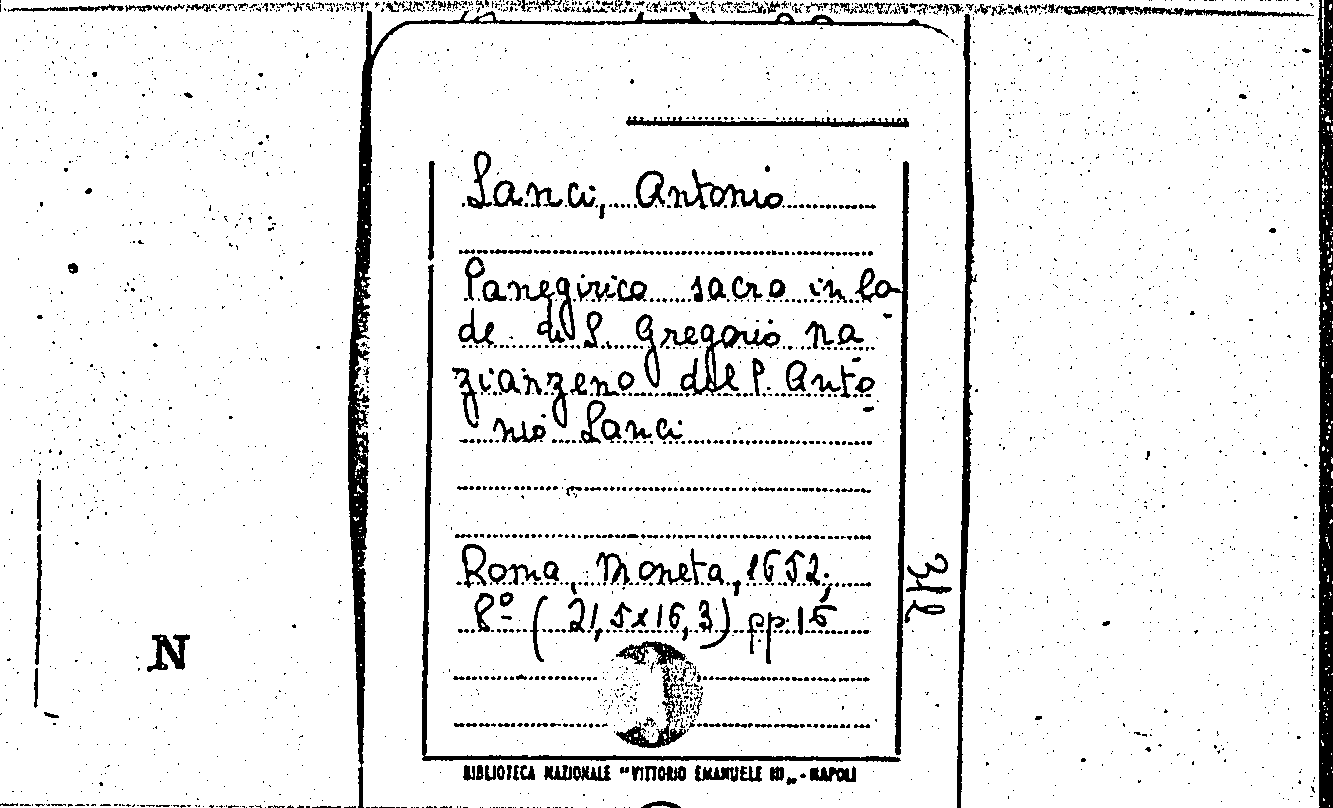 Lanci, Antonio
Panegirico sacro in lo-
de di S. Gregorio na-
zianzeno del P. Anto-
nio Lanci
Roma, Moneta, 1652;
8º (21,5x16,3) pp. 16
N
BIBLIOTECA NAZIONALE "VITTORIO EMANUELE III" - NAPOLI